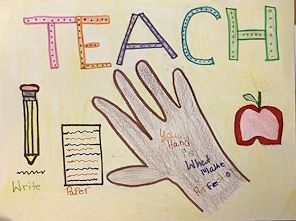 TEACH
Write
Paper
You
Hand
is
What
make
Perfect